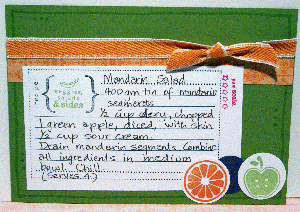 Mandarin Salad
veggies, salads & sides
400gm tin of mandarin
segments
1/2 cup celery, chopped
1 green apple, diced, with skin
1/2 cup sour cream.
Drain mandarin segments. Combine
all ingredients in medium
bowl. Chill
(Serves 4)